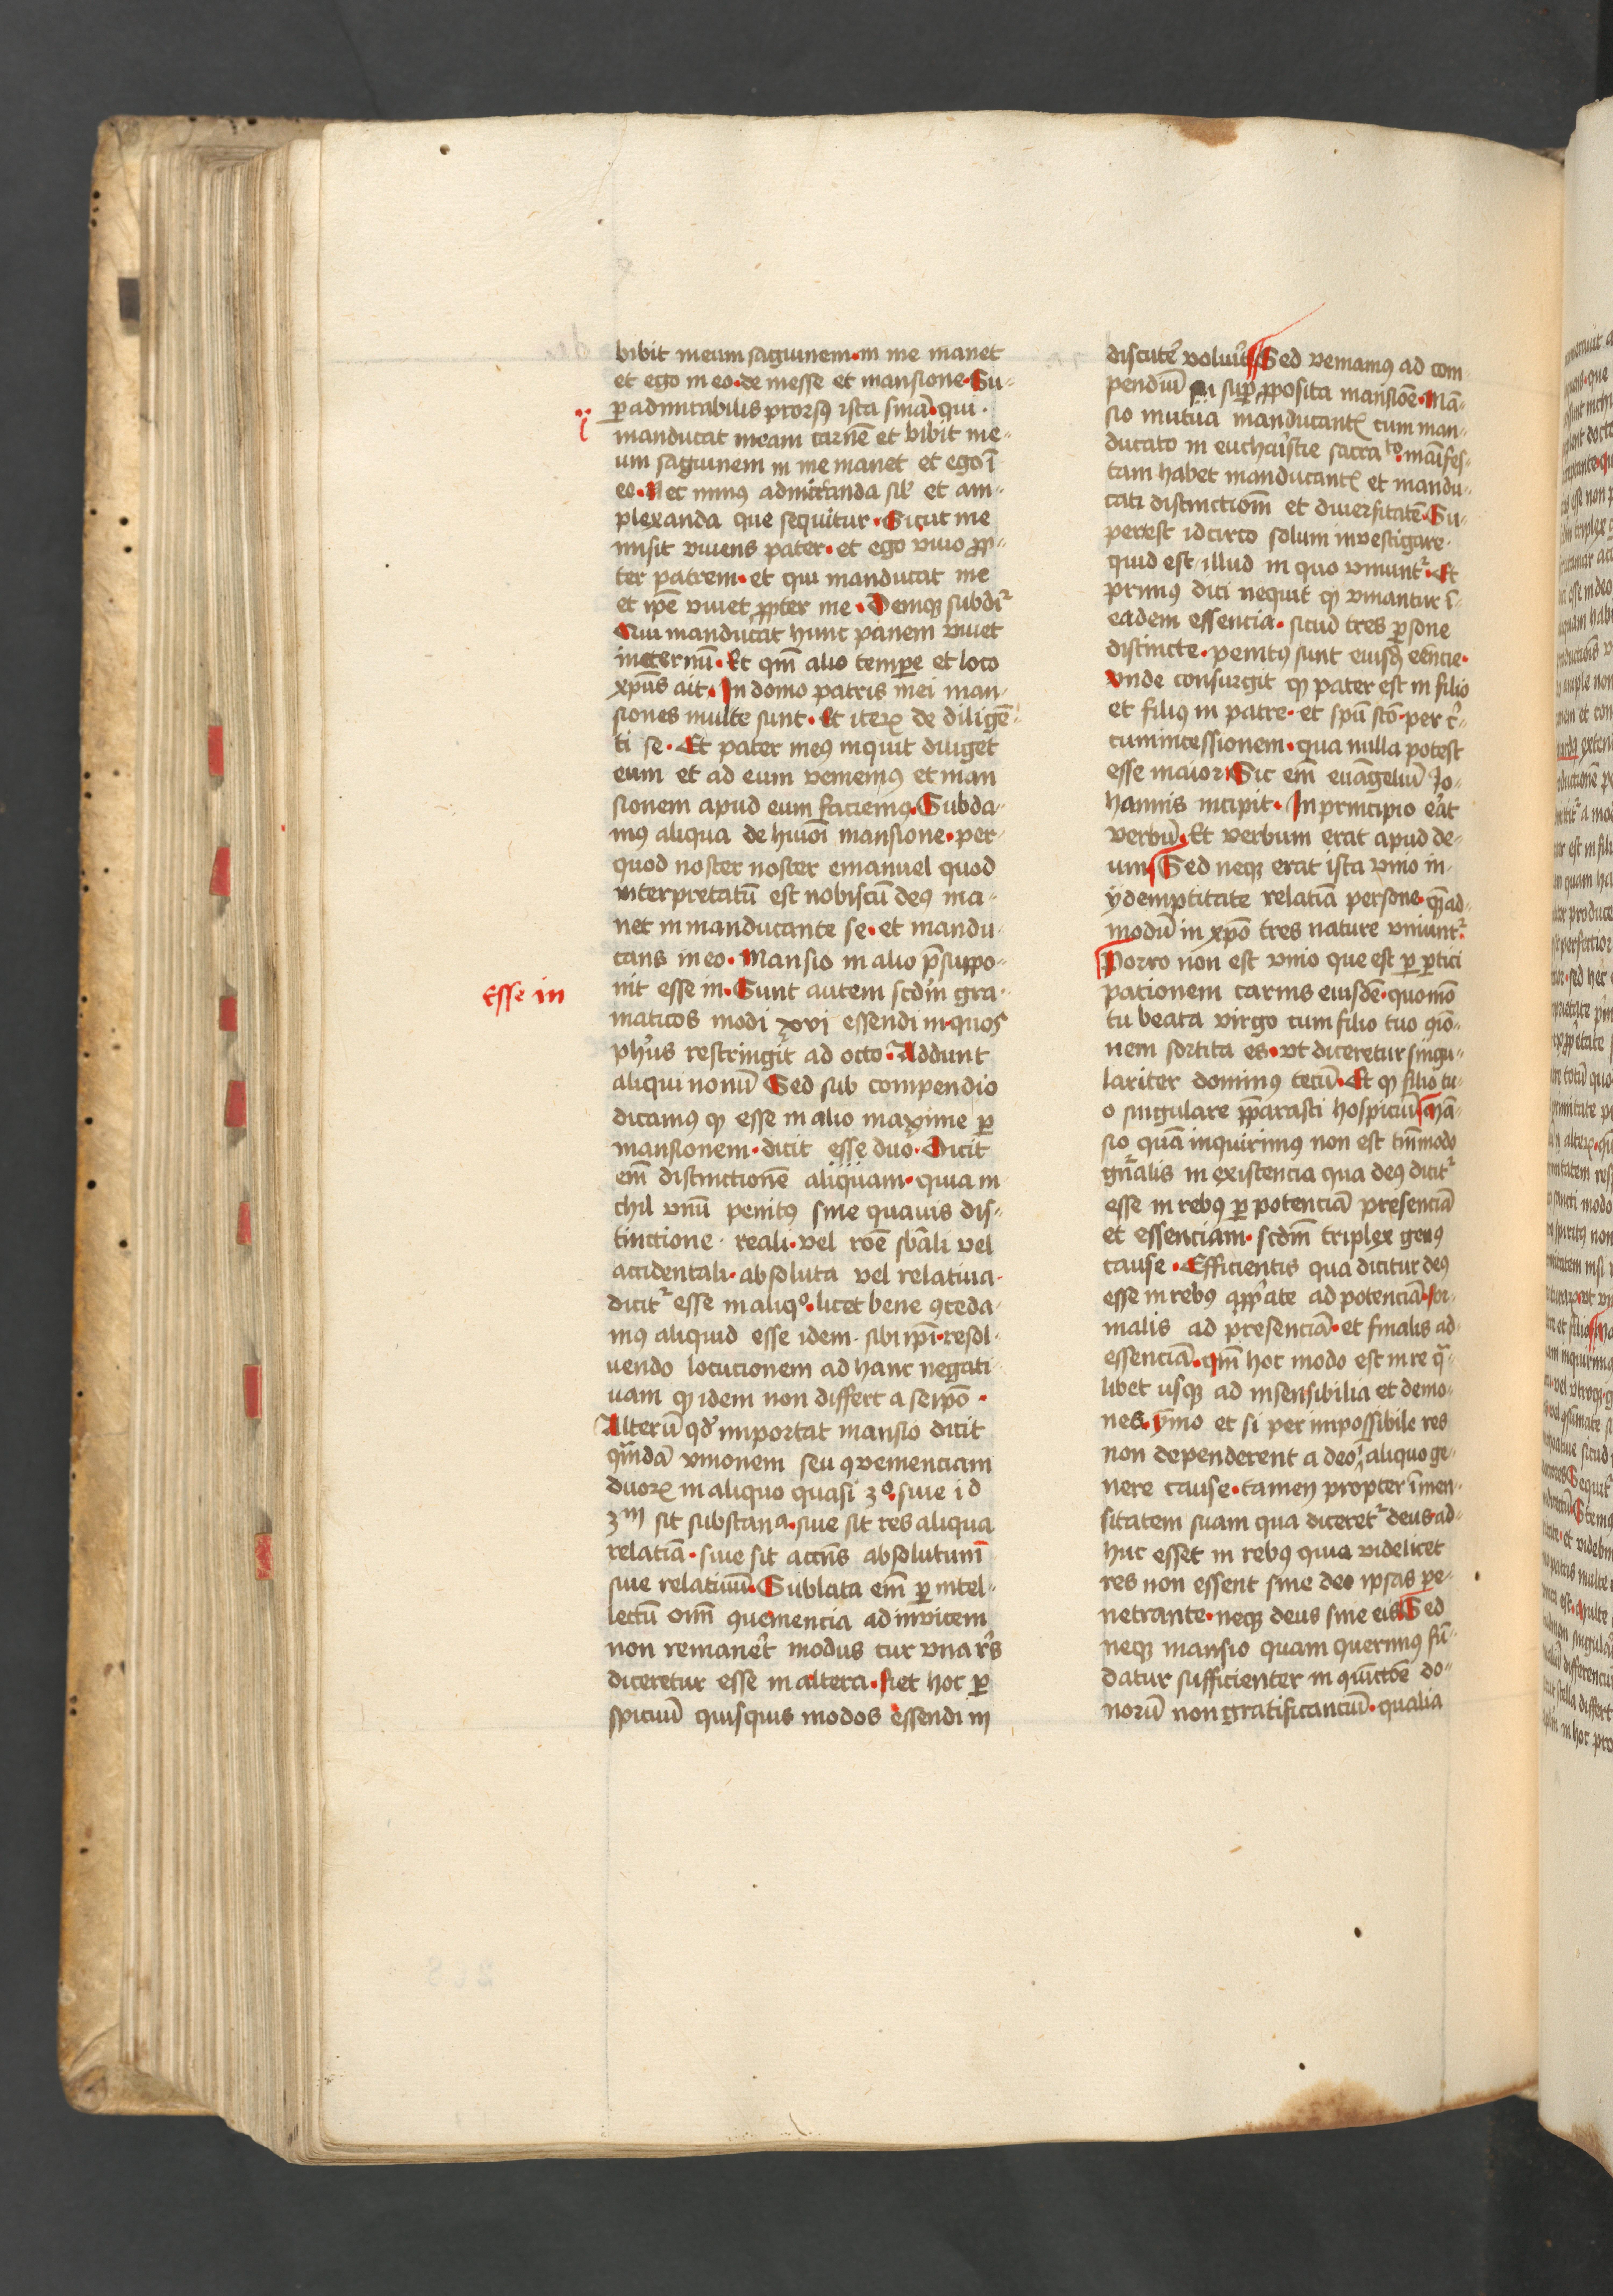 bibit meum saguinem · in me manet
et ego in eo · de inesse et mansione · Su-
ꝑadmirabilis prorsꝰ ista sn̄ia · qui ·
manducat meam carnē et bibit me-
um saguinem in me manet et ego ī
eo · Nec minꝰ admiranda sil' et am-
plexanda que sequitur · Sicut me
misit viuens pater · et ego viuo ꝓp-
ter patrem · et qui manducat me
et ip̄e viuet ꝓpter me · Deniqꝫ subdit᷑
Qui manducat hunc panem viuet
ineternū · Et qm̄ alio tempe et loco
xpūs ait · In domo patris mei man-
siones multe sunt · Et iteꝝ de diligē-
ti se · Et pater meꝰ inquit diliget
eum et ad eum veniemꝰ et man
sionem apud eum faciemꝰ · Subda-
mꝰ aliqua de hiuōi mansione · per-
quod noster noster emanuel quod
interpretatū est nobiscū deꝰ ma-
net in manducante se · et mandu-
cans in eo · Mansio in alio p̄suppo-
Esse in
nit esse in · Sunt autem scd̄m gra-
maticos modi xvi essendi in · quos
ph'us restringit ad octo · Addunt
aliqui nonū Sed sub compendio
dicamꝰ ꝙ esse in alio maxime ꝑ
mansionem · dicit esse duo · Dicit
em̄ distinctionē aliquam · quia ni
chil vnū penitꝰ sine quauis dis-
tinctione · reali · vel roē sb̄ali vel
accidentali · absoluta vel relatiua ·
dicit᷑ esse in aliqº · licet bene ꝯceda-
mꝰ aliquid esse idem · sibi ip̄i · resol-
uendo locucionem ad hanc negati-
uam ꝙ idem non differt a seip̄o ·
Alterū qd' importat mansio dicit
quandā vnionem seu ꝯuenienciam
duoꝝ in aliquo quasi 3º · siue id
3ᵐ sit substanᵃ · siue sit res aliqua
relatiā · siue sit accn̄s absolutum
siue relatiuū · Sublata em̄ ꝑ intel-
lectū om̄ ꝯueniencia adinvicem
non remanet modus cur vna res
diceretur esse in altera · Liet hoc ꝑ
spiciuū quisquis modos essendi in
discutē voluit Sed veniamꝰ ad com-
pendiū suꝑ ꝓposita mansiōe · Mā-
sio mutua manducantꝭ cum man-
ducato in euchaꝛistie sacraᵗᵒ · māifes-
tam habet manducantꝭ et mandu-
cati distinctiom̄ et diuersitatē · Su-
perest idcirco solum investigare ·
quid est illud in quo vniunt᷑ · Et
primꝰ dici nequit ꝙ vniantur ī
eadem essencia · sicud tres ꝑsone
distincte · penitꝰ sunt eiusdē eēncie ·
Vnde consurgit ꝙ pater est in filio
et filiꝰ in patre · et spū sc̄o · per cir-
cumincessionem · qua nulla potest
esse maior · Sic em̄ euāgeliū Jo-
hannis incipit · In principio erat
verbū · Et verbum erat apud de-
um Sed neqꝫ erat ista vnio in-
ydemptitate relatiā persone · quēad-
modū in xpō tres nature vniunt᷑
Porro non est vnio que est ꝑ ꝑtici
pationem carnis eiusdē · quomō
tu beata virgo cum filio tuo vnio-
nem sortita es · vt diceretur singu-
lariter dominꝰ tecū · Et ꝙ filio tu-
o singulare p̄parasti hospiciū Mā-
sio quā inquirimꝰ non est tm̄modo
gn̄alis in existencia qua deꝰ dicit᷑
esse in rebꝰ ꝑ potenciā presenciā
et essenciam · scd̄m triplex genꝰ
cause · Efficientis qua dicitur deꝰ
esse in rebꝰ app̄ate ad potenciā · for-
malis ad presenciā · et finalis ad-
essenciā · qm̄ hoc modo est in re qua-
libet usqꝫ ad insensibilia et demo-
nes · ymo et si per impossibile res
non dependerent a deo ī aliquo ge-
nere cause · tamen propter īmen-
sitatem suam qua diceret᷑ deus ad-
huc esset in rebꝰ quia videlicet
res non essent sine deo ipsas pe-
netrante · neqꝫ deus sine eis Sed
neqꝫ mansio quam querimꝰ fū-
datur sufficienter in quictōe do-
norū non gratificanciū · qualia